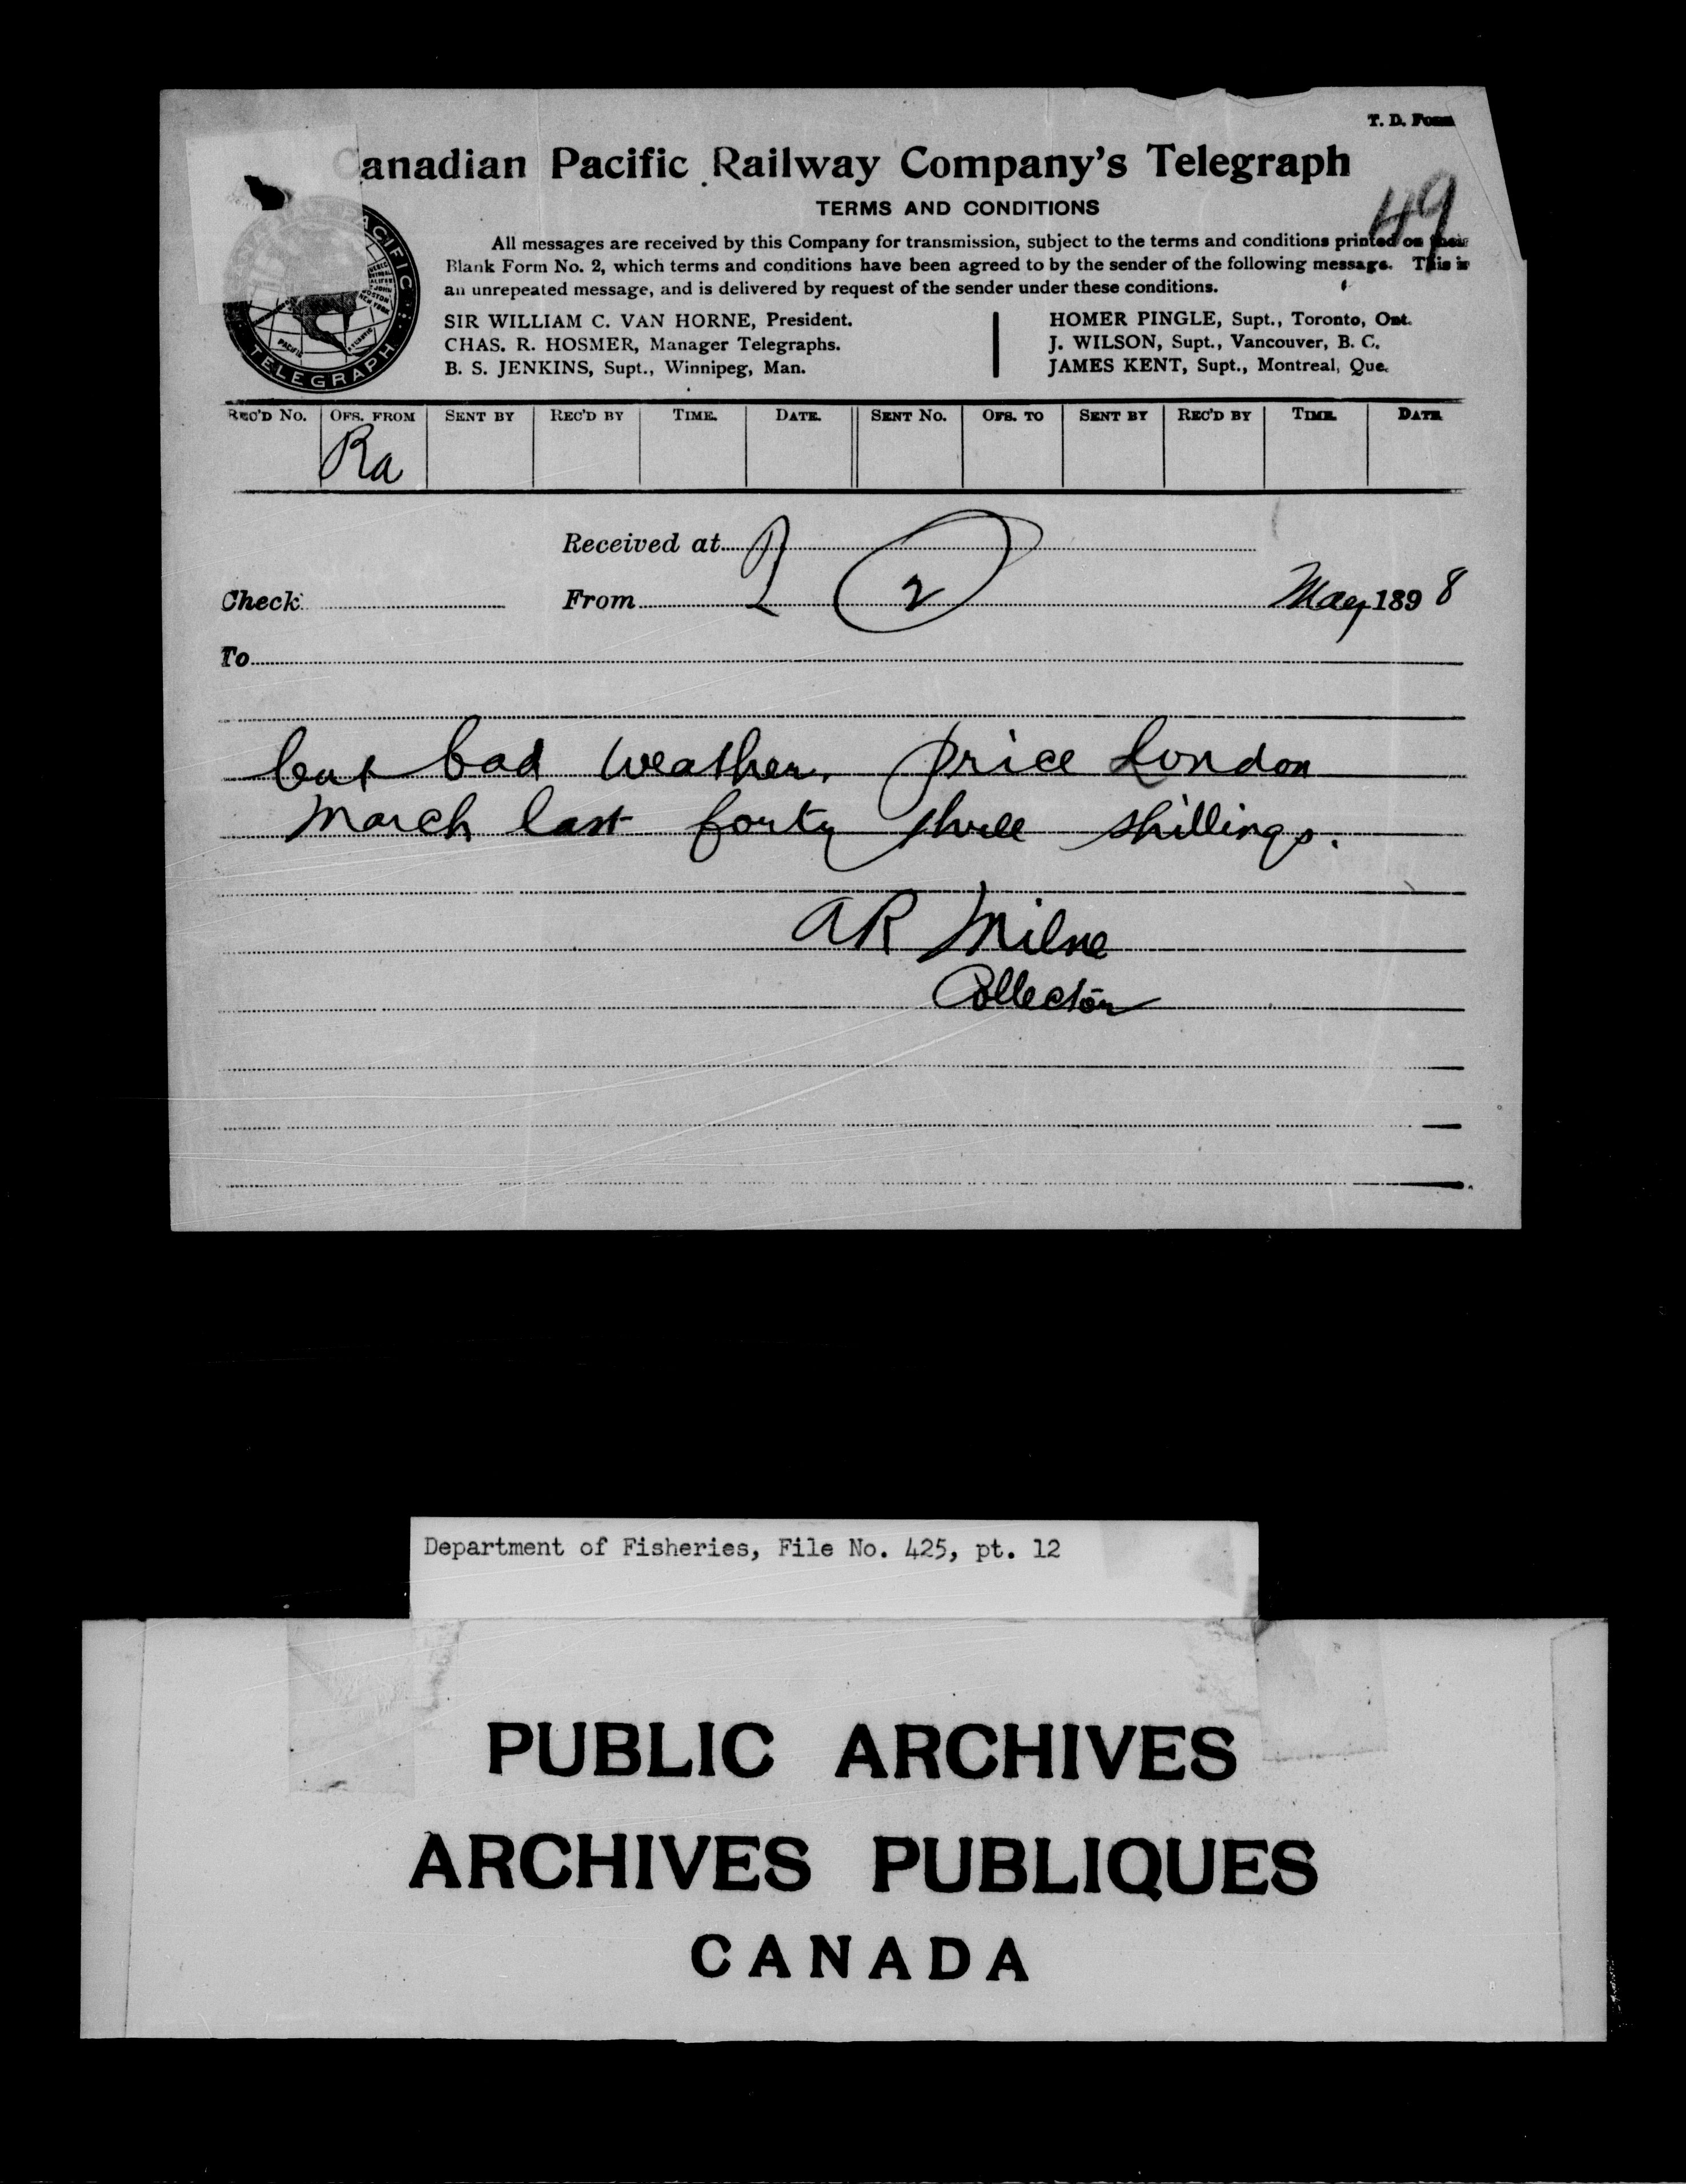 T. D. Form
Canadian Pacific Railway Company's Telegraph
TERMS AND CONDITIONS
49
All messages are received by this Company for transmission, subject to the terms and conditions printed on their
Blank Form No. 2, which terms and conditions have been agreed to by the sender of the following message. This is
an unrepeated message, and is delivered by request of the sender under these conditions.
SIR WILLIAM C. VAN HORNE, President.
CHAS. R. HOSMER, Manager Telegraphs.
B. S. JENKINS, Supt., Winnipeg, Man.
HOMER PINGLE, Supt., Toronto, Ont.
J. WILSON, Supt., Vancouver, B. C.
JAMES KENT, Supt., Montreal, Que.
PACIFIC
TELEGRAPH
REC'D NO. OFS. FROM SENT BY REC'D BY TIME. DATE. SENT NO. OFS. TO SENT BY REC'D BY TIME. DATE
Ra
Received at
Check From 2 May 1898
To
but bad weather. price London
March last forty three shillings.
AR Milne
Collector
Department of Fisheries, File No. 425, pt. 12
PUBLIC ARCHIVES
ARCHIVES PUBLIQUES
CANADA